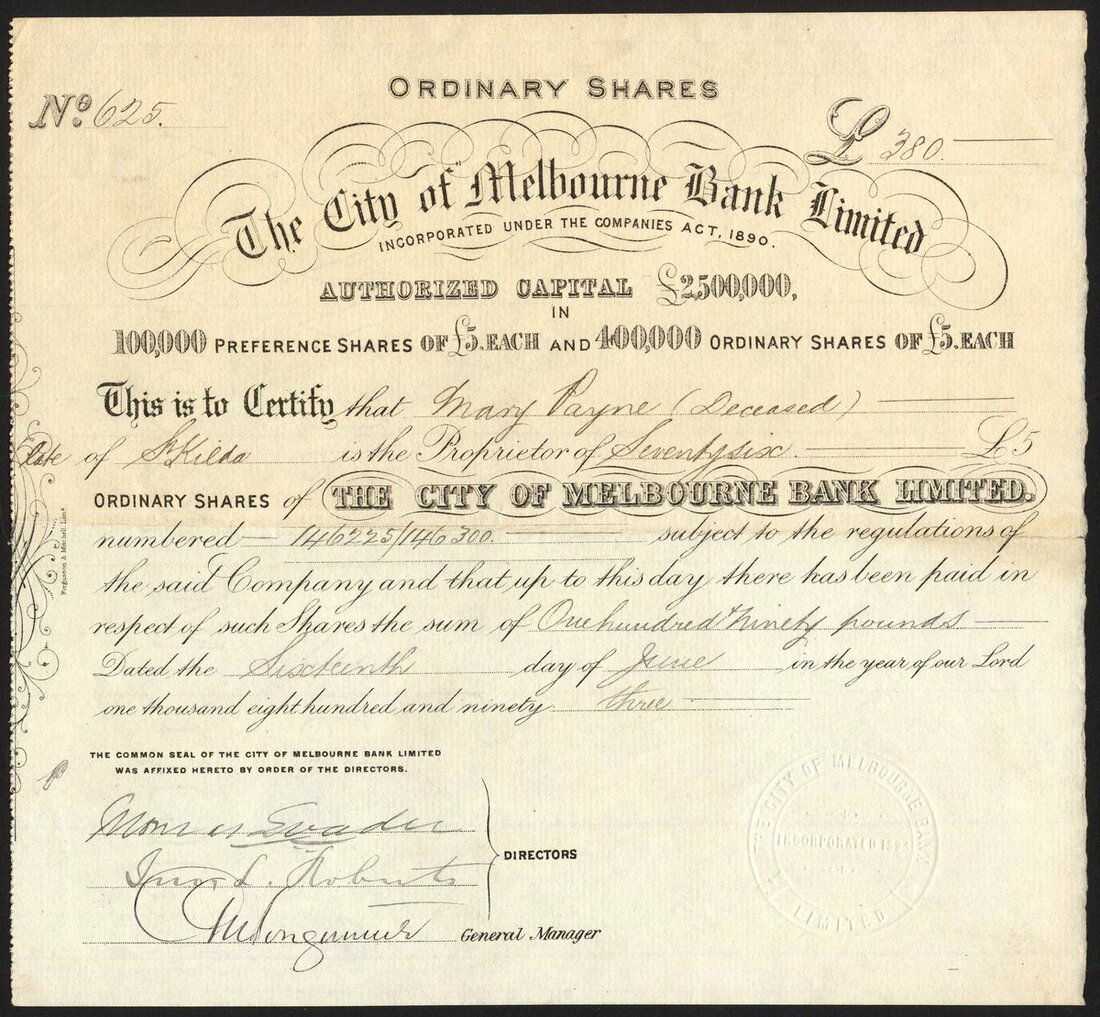 ORDINARY SHARES
No. 625.
£ 380.
The City of Melbourne Bank Limited
INCORPORATED UNDER THE COMPANIES ACT, 1890.
AUTHORIZED CAPITAL £2,500,000,
IN
100,000 PREFERENCE SHARES OF £5. EACH AND 400,000 ORDINARY SHARES OF £5. EACH
This is to Certify that Mary Payne (Deceased)
late of St Kilda is the Proprietor of Seventy six £5
ORDINARY SHARES of THE CITY OF MELBOURNE BANK LIMITED.
numbered 146225/146300. subject to the regulations of
the said Company and that up to this day there has been paid in
respect of such Shares the sum of One hundred & ninety pounds
Dated the Sixteenth day of June in the year of our Lord
one thousand eight hundred and ninety three
Fergusson & Mitchell Limd.
THE COMMON SEAL OF THE CITY OF MELBOURNE BANK LIMITED
WAS AFFIXED HERETO BY ORDER OF THE DIRECTORS.
Roberts
DIRECTORS
General Manager
THE CITY OF MELBOURNE BANK
INCORPORATED
LIMITED